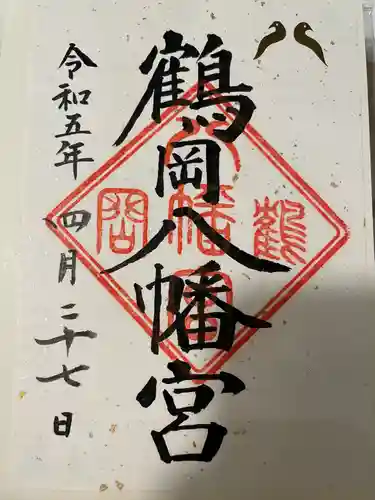 鶴岡八幡宮
令和五年四月二十七日
鶴岡
八幡宮